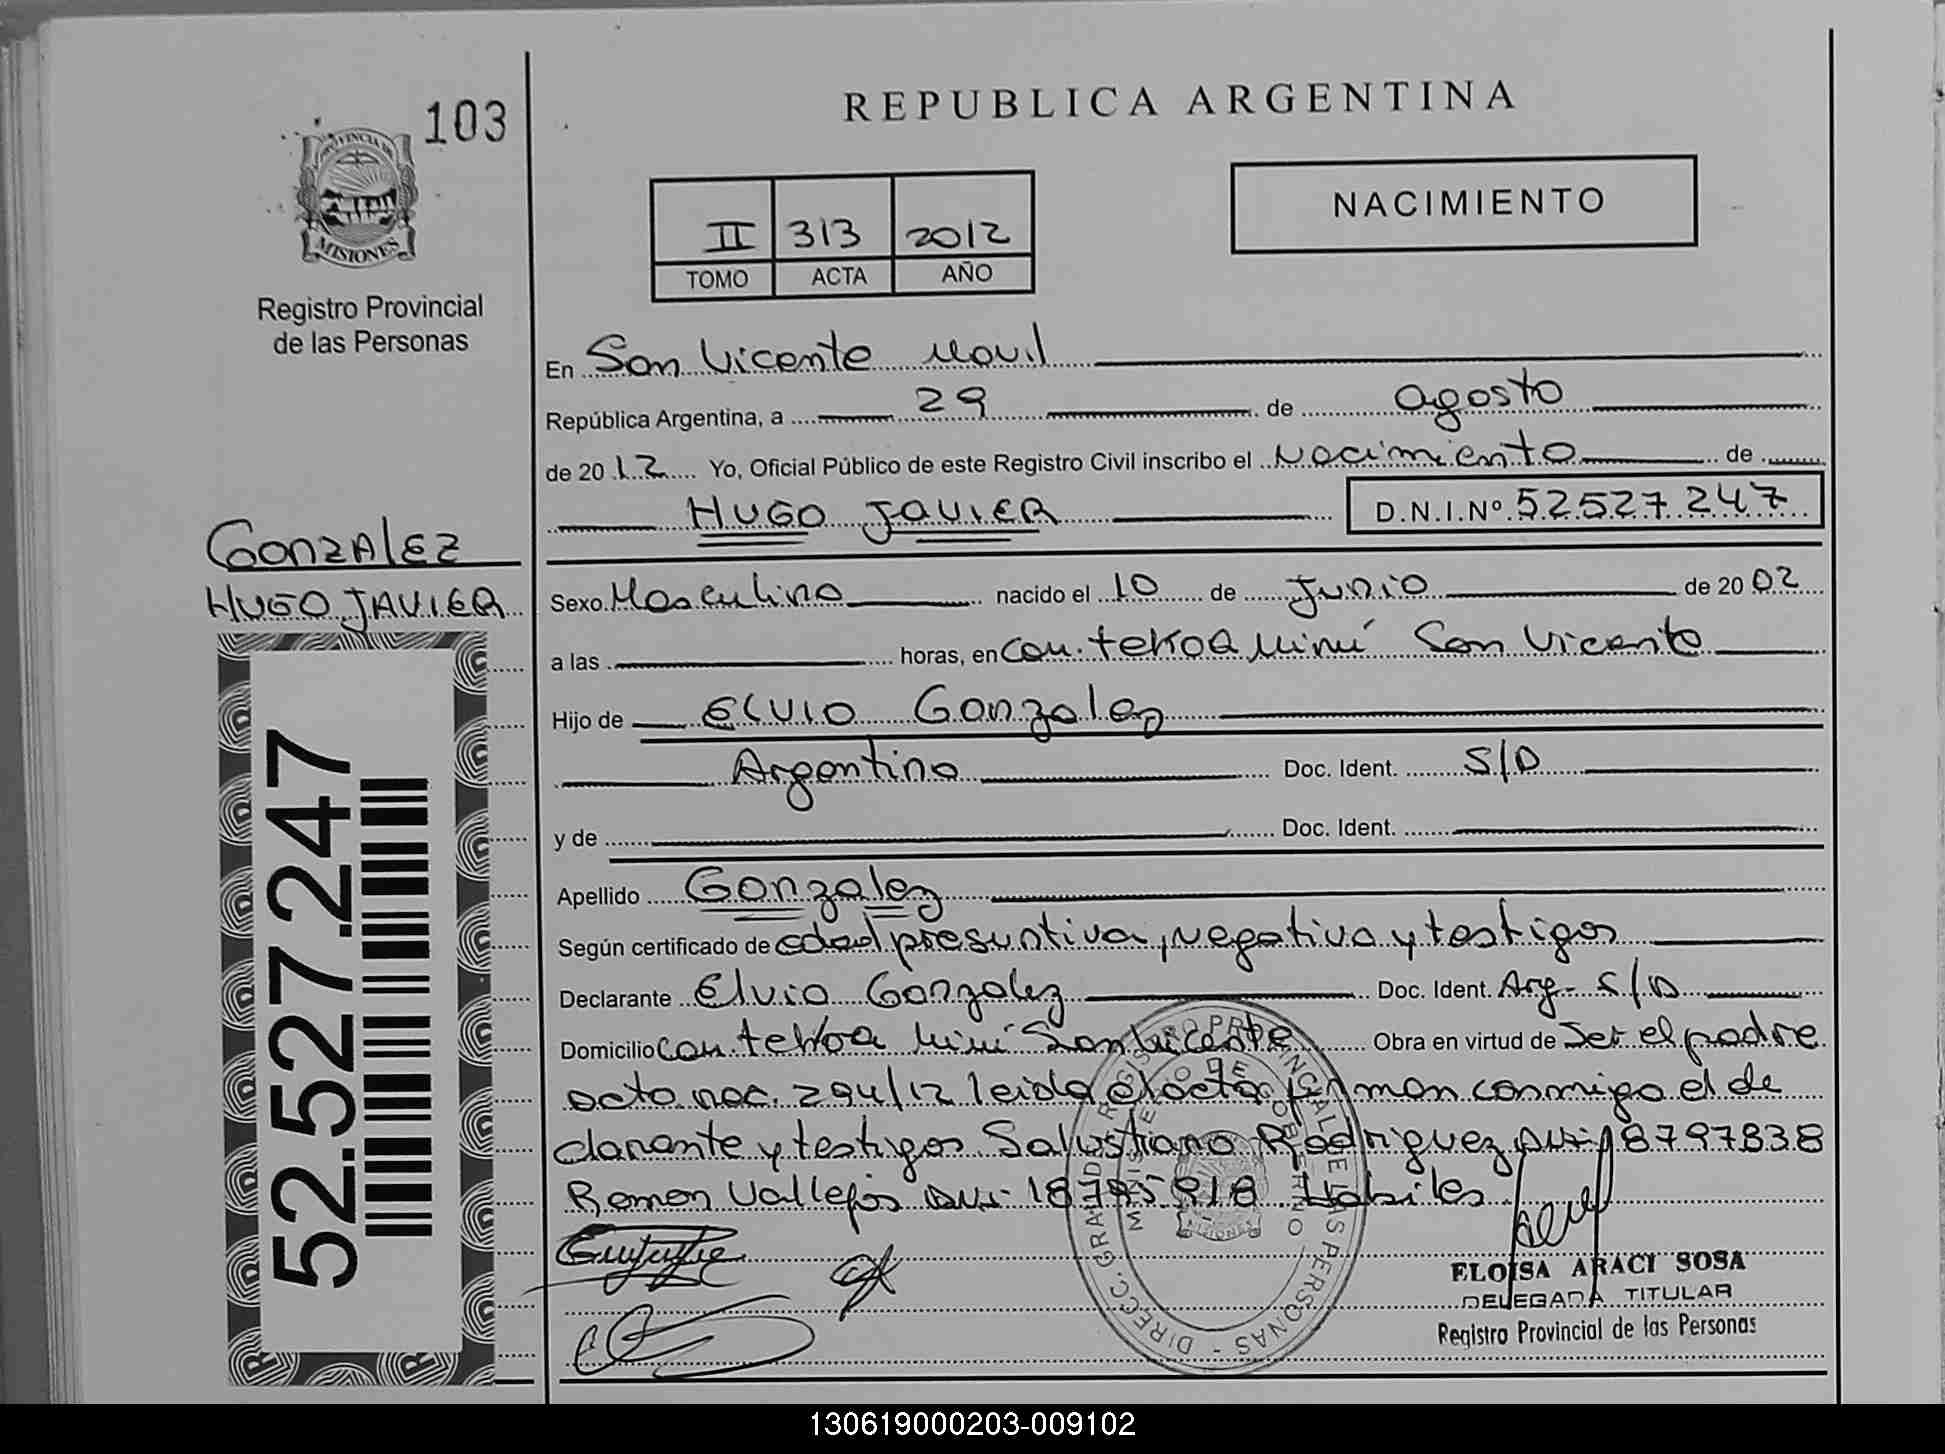 103
PROVINCIA DE
MISIONES
Registro Provincial
de las Personas
REPUBLICA ARGENTINA
NACIMIENTO
II 313 2012
TOMO ACTA AÑO
En San Vicente Movil
República Argentina, a 29 de agosto
de 2012 Yo, Oficial Público de este Registro Civil inscribo el Nacimiento de
HUGO JAVIER D.N.I.Nº 52527247
GONZALEZ
HUGO JAVIER
Sexo Masculino nacido el 10 de Junio de 2002
a las horas, en Com. tekoa Miní San Vicente
Hijo de ELVIO Gonzalez
Argentino Doc. Ident. S/D
y de Doc. Ident.
Apellido Gonzalez
Según certificado de edad presuntiva, negativa y testigos
Declarante Elvio Gonzalez Doc. Ident. Arg. S/D
Domicilio Com. tekoa Miní San Vicente Obra en virtud de Ser el padre
acta nac. 294/12 leida el acta firman conmigo el de
clarante y testigos Salustiano Rodriguez DNI 18797838
Ramon Vallejos DNI 18795818 Habiles
ELOISA ARACI SOSA
DELEGADA TITULAR
Registro Provincial de las Personas
DIRECC. GRAL. DE REGISTRO PROVINCIAL DE LAS PERSONAS
MINISTERIO DE GOBIERNO
MISIONES
52.527.247
130619000203-009102